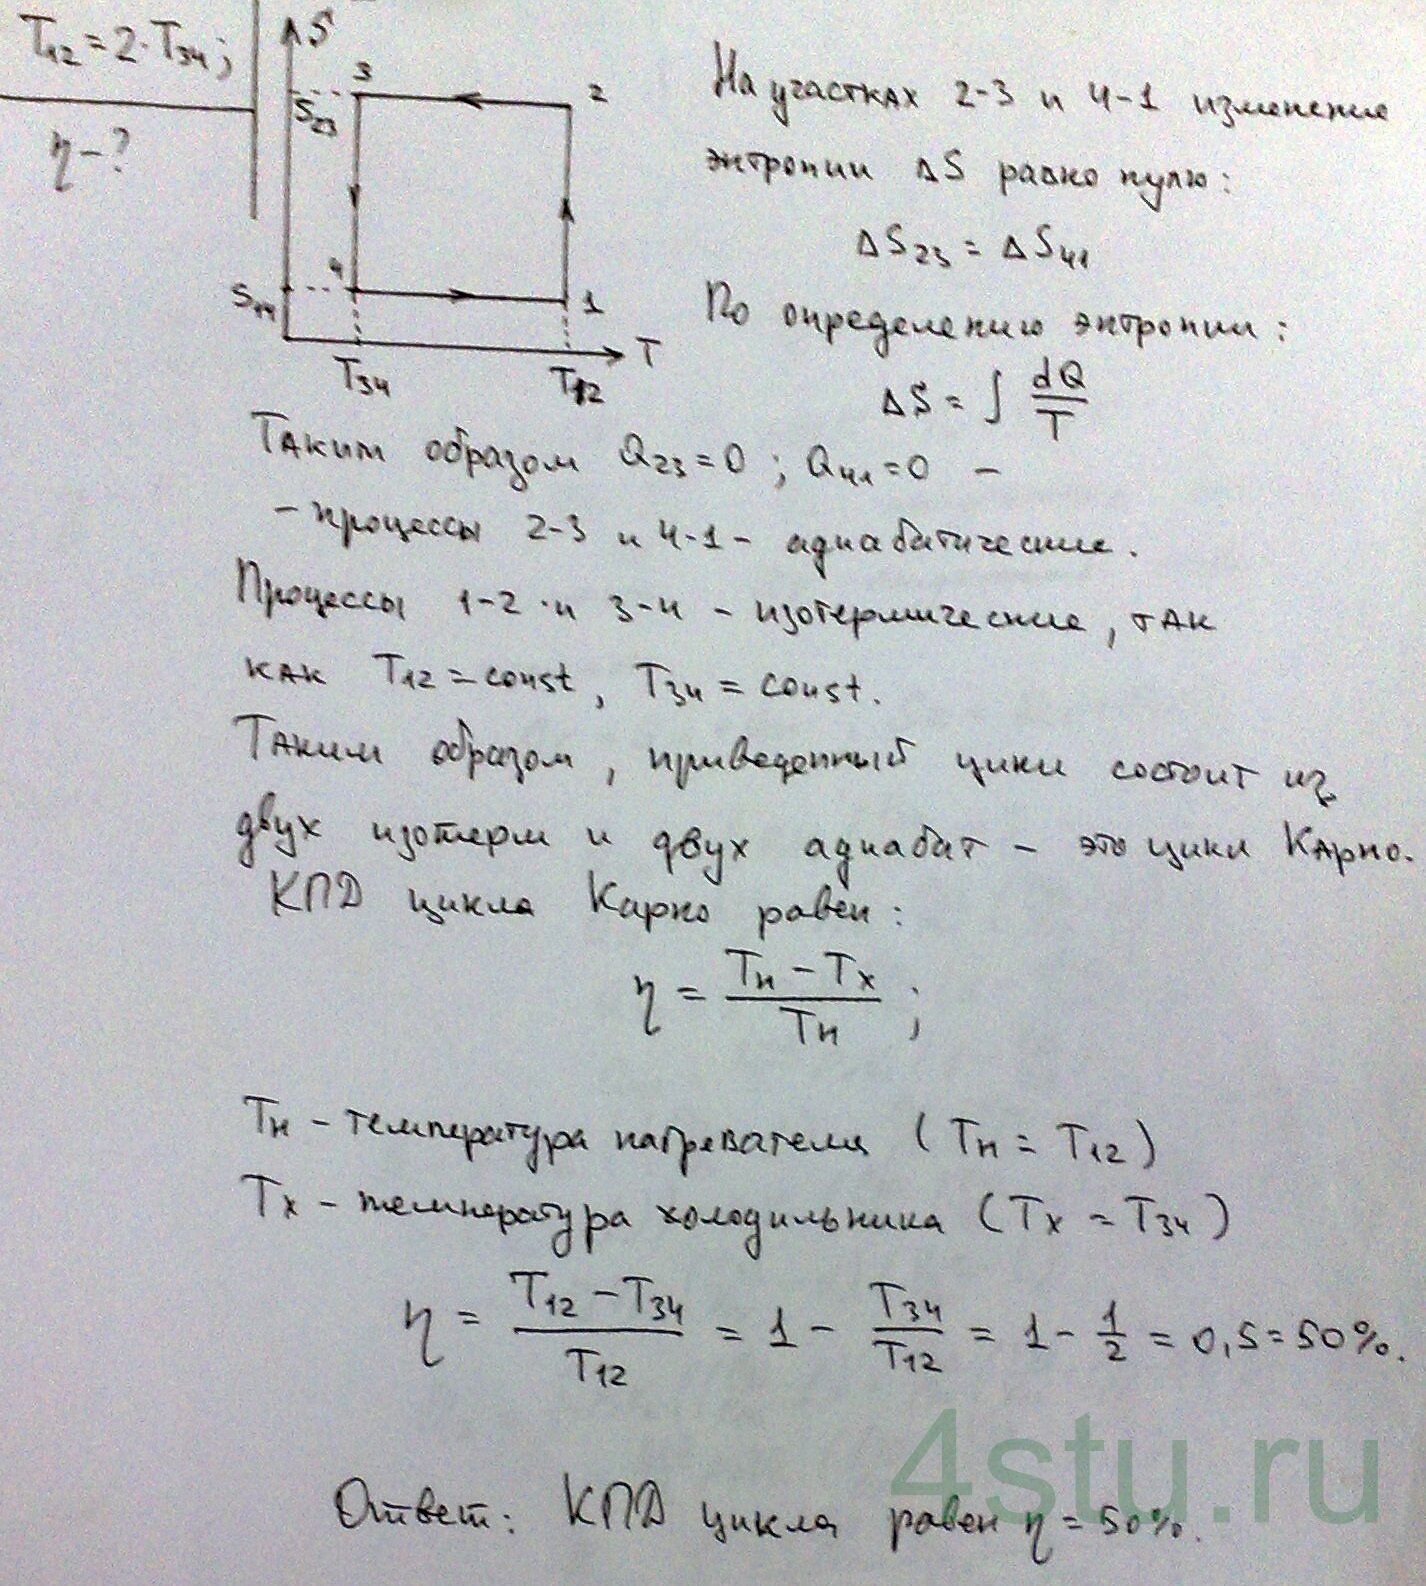 T₁₂ = 2·T₃₄;
η – ?
S
3
2
S₂₃
4
S₁₄
1
T
T₃₄
T₁₂
На участках 2-3 и 4-1 изменение
энтропии ΔS равно нулю:
ΔS₂₃ = ΔS₄₁
По определению энтропии:
ΔS = ∫ dQ/T
Таким образом Q₂₃ = 0 ; Q₄₁ = 0 –
– процессы 2-3 и 4-1 – адиабатические.
Процессы 1-2 и 3-4 – изотермические, так
как T₁₂ = const, T₃₄ = const.
Таким образом, приведенный цикл состоит из
двух изотерм и двух адиабат – это цикл Карно.
КПД цикла Карно равен:
η = (Tн – Tх)/Tн ;
Tн – температура нагревателя (Tн = T₁₂)
Tх – температура холодильника (Tх = T₃₄)
η = (T₁₂ – T₃₄)/T₁₂ = 1 – T₃₄/T₁₂ = 1 – 1/2 = 0,5 = 50%.
4stu.ru
Ответ: КПД цикла равен η = 50%.